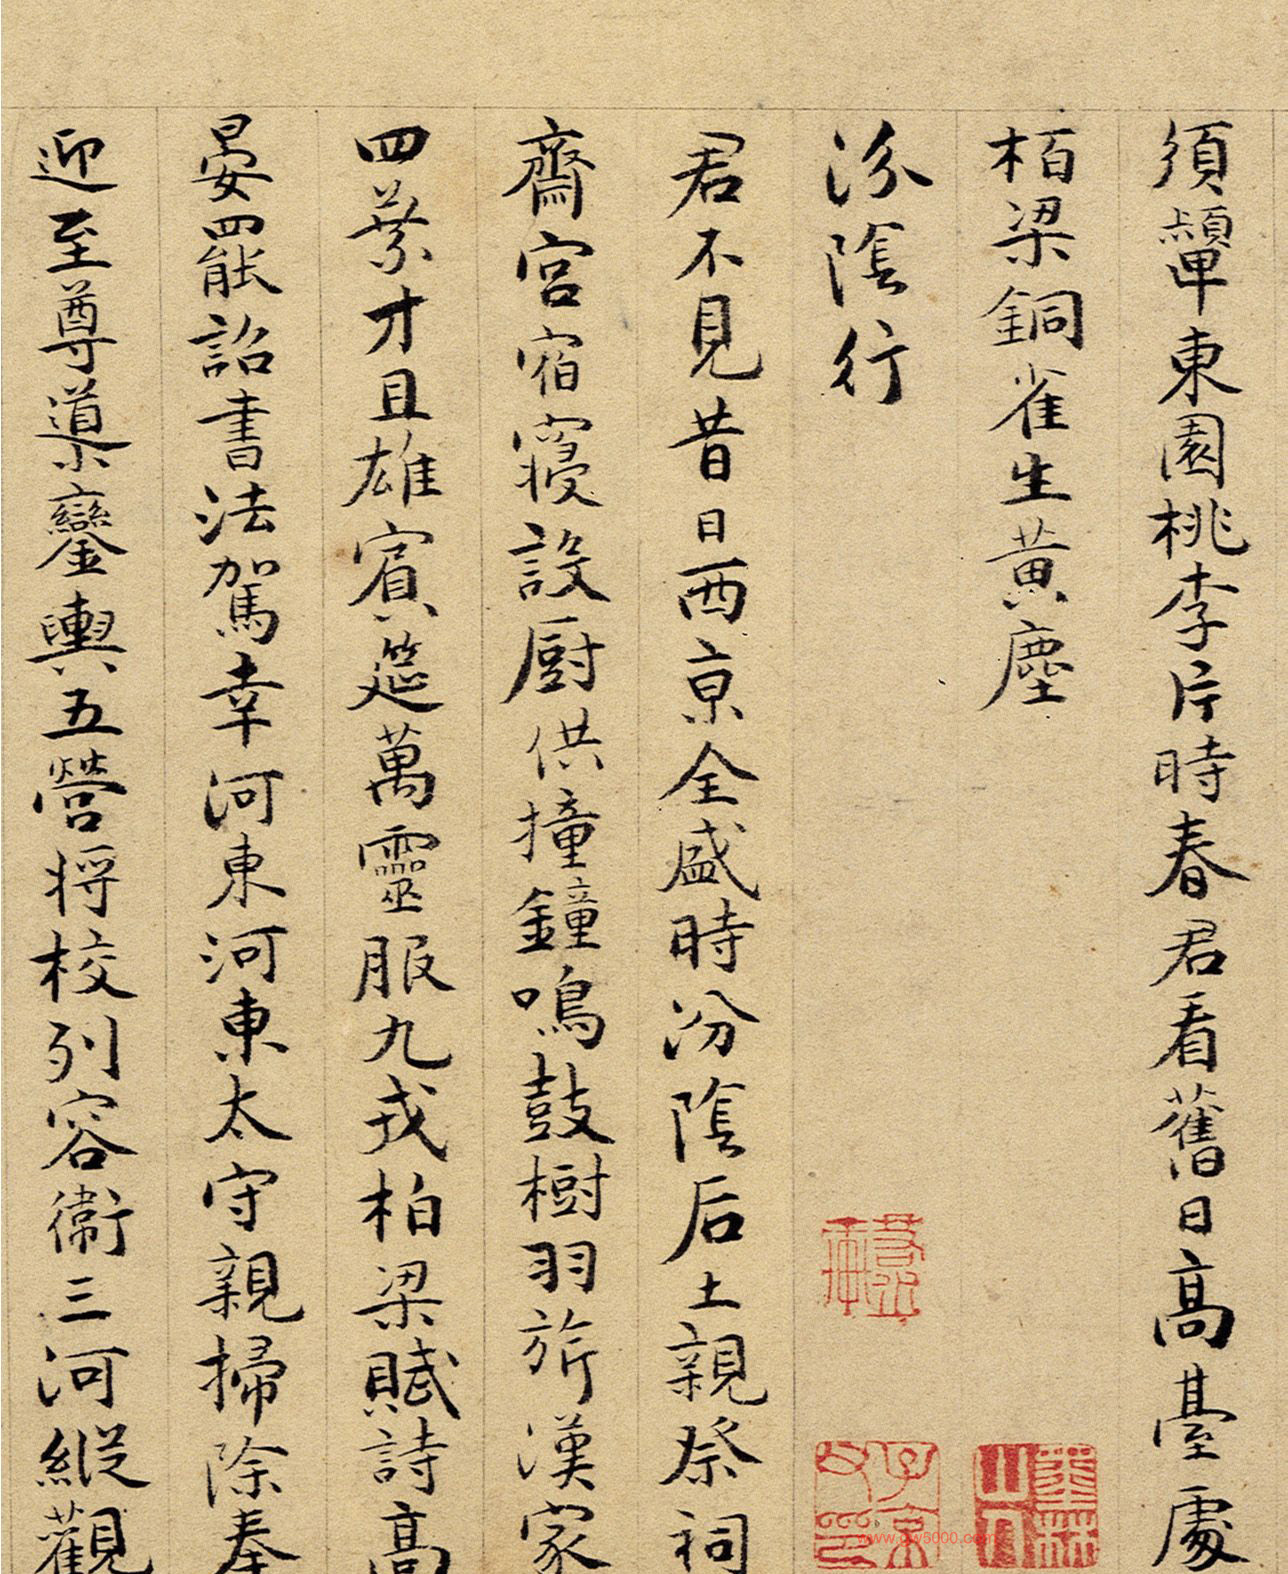 須顰東園桃李片時春君看舊日高臺處
栢梁銅雀生黃塵
汾陰行
君不見昔日西京全盛時汾陰后土親祭祠
齋宮宿寢設厨供撞鐘鳴鼓樹羽旂漢家
四葉才且雄賓筵萬靈服九戎柏梁賦詩高
晏罷詔書法駕幸河東河東太守親掃除奉
迎至尊導鑾輿五營將校列容衛三河縱觀
子京
父印
www.gw5000.com